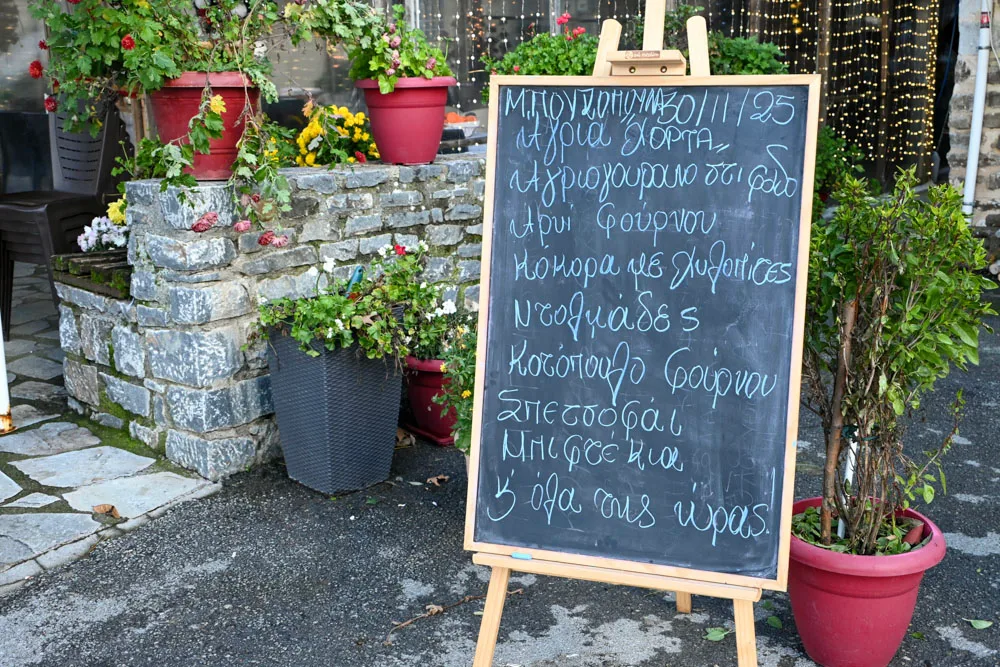 30/11/25
Άγρια χόρτα,,
Αγριογούρουνο στι φούρνο
Αρνί φούρνου
Κόκορα με χυλοπίτες
Ντολμάδες
Κοτόπουλο φούρνου
Σπετσοφάι
Μπιφτέκια
κ όλα της ώρας!